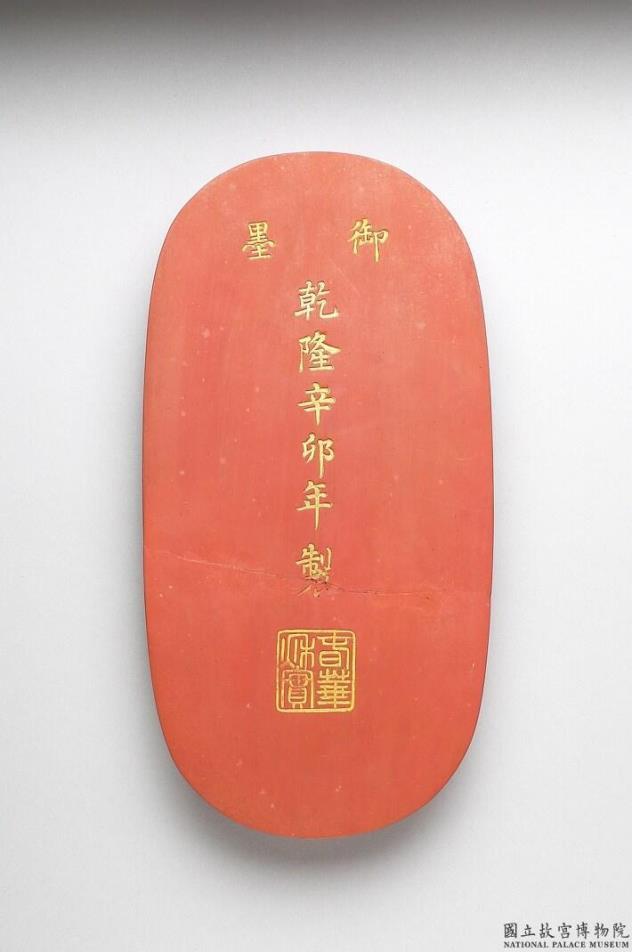 御墨
乾隆辛卯年製
春華
秋實
國立故宮博物院
NATIONAL PALACE MUSEUM